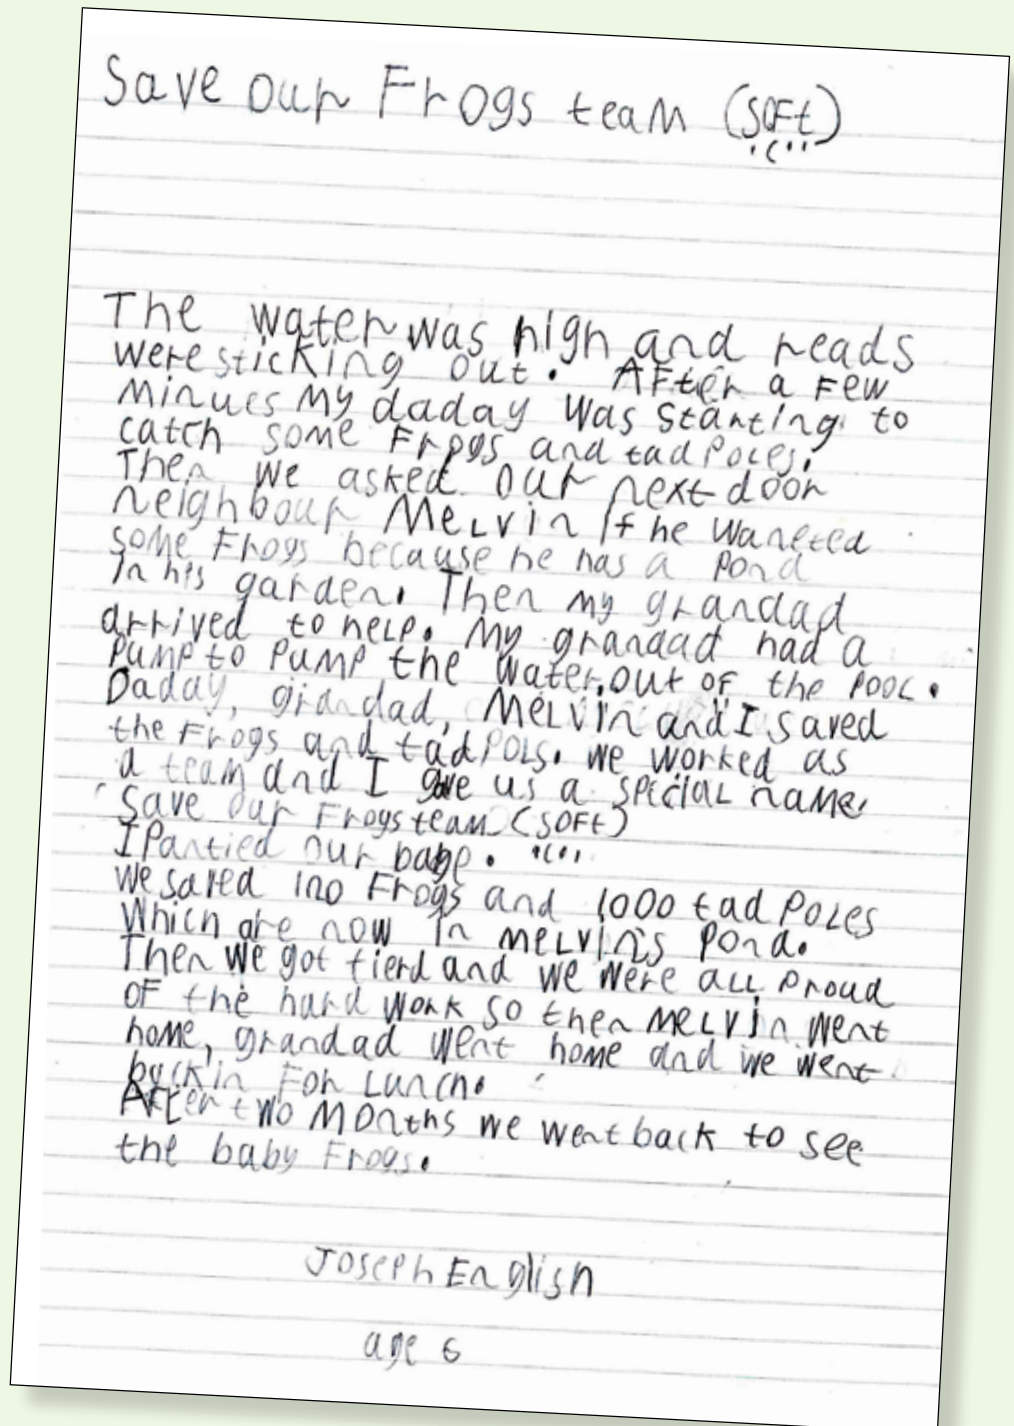 Save our Frogs team (SOFt)
The water was high and reads
were sticking out. AFter a Few
minues my daday was starting to
catch some Frogs and tadpoles.
Then we asked our next door
neighbour Melvin if he waneted
some Frogs because he has a pond
in his garden. Then my grandad
arrived to help. my grandad had a
pump to pump the water out of the pool.
Daday, grandad, Melvin and I saved
the Frogs and tadpols. we worked as
a team and I gave us a spicial name.
Save our Frogs team (SOFt)
I pantied our bage.
we saved 120 Frogs and 1000 tadpoles
which are now in melvin's pond.
Then we got tierd and we were all proud
of the hard work so then melvin went
home, grandad went home and we went
back in For lunch.
AFter two months we went back to see
the baby Frogs.
Joseph English
age 6